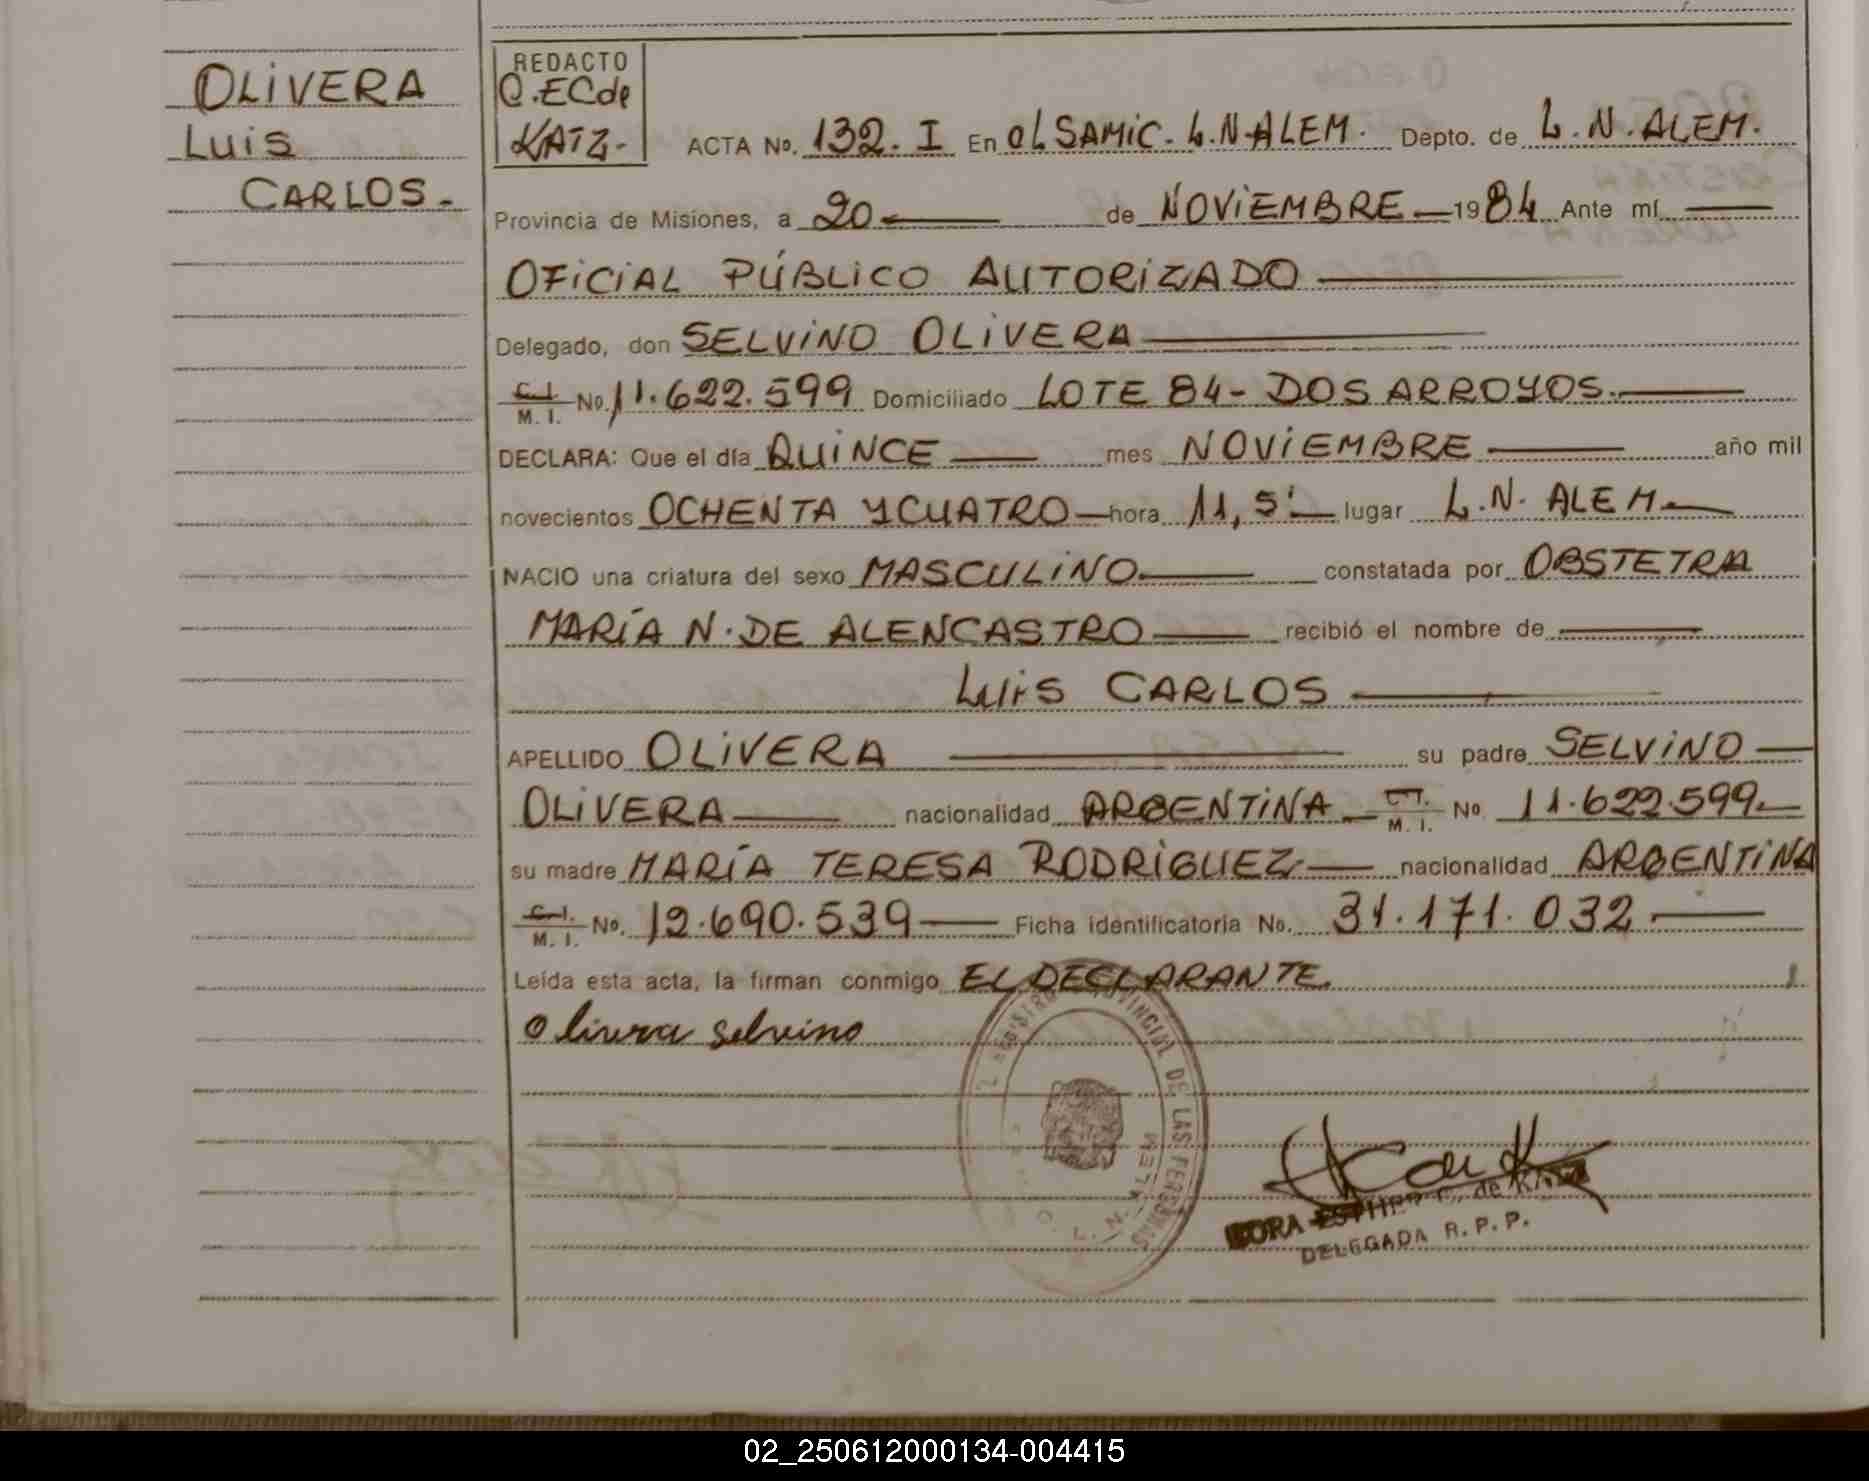 OLIVERA
Luis
CARLOS.-
REDACTO
C.ECde
KATZ-
ACTA No. 132. I En OL SAMIC. L.N-ALEM. Depto. de L.N.ALEM.
Provincia de Misiones, a 20 de NOVIEMBRE 1984 Ante mí
OFICIAL PÚBLICO AUTORIZADO
Delegado, don SELVINO OLIVERA
C.I. M.I. No. 11.622.599 Domiciliado LOTE 84- DOS ARROYOS.
DECLARA: Que el día QUINCE mes NOVIEMBRE año mil
novecientos OCHENTA Y CUATRO hora 11,5' lugar L.N. ALEM
NACIO una criatura del sexo MASCULINO constatada por OBSTETRA
MARÍA N. DE ALENCASTRO recibió el nombre de
Luis CARLOS
APELLIDO OLIVERA su padre SELVINO
OLIVERA nacionalidad ARGENTINA C.I. M.I. No. 11.622.599
su madre MARÍA TERESA RODRIGUEZ nacionalidad ARGENTINA
C.I. M.I. No. 12.690.539 Ficha identificatoria No. 31.171.032
Leída esta acta, la firman conmigo EL DECLARANTE.
Olivera Selvino
REGISTRO PROVINCIAL DE LAS PERSONAS
L. N. ALEM
DORA ESTHER C. de KATZ
DELEGADA R.P.P.
02_250612000134-004415